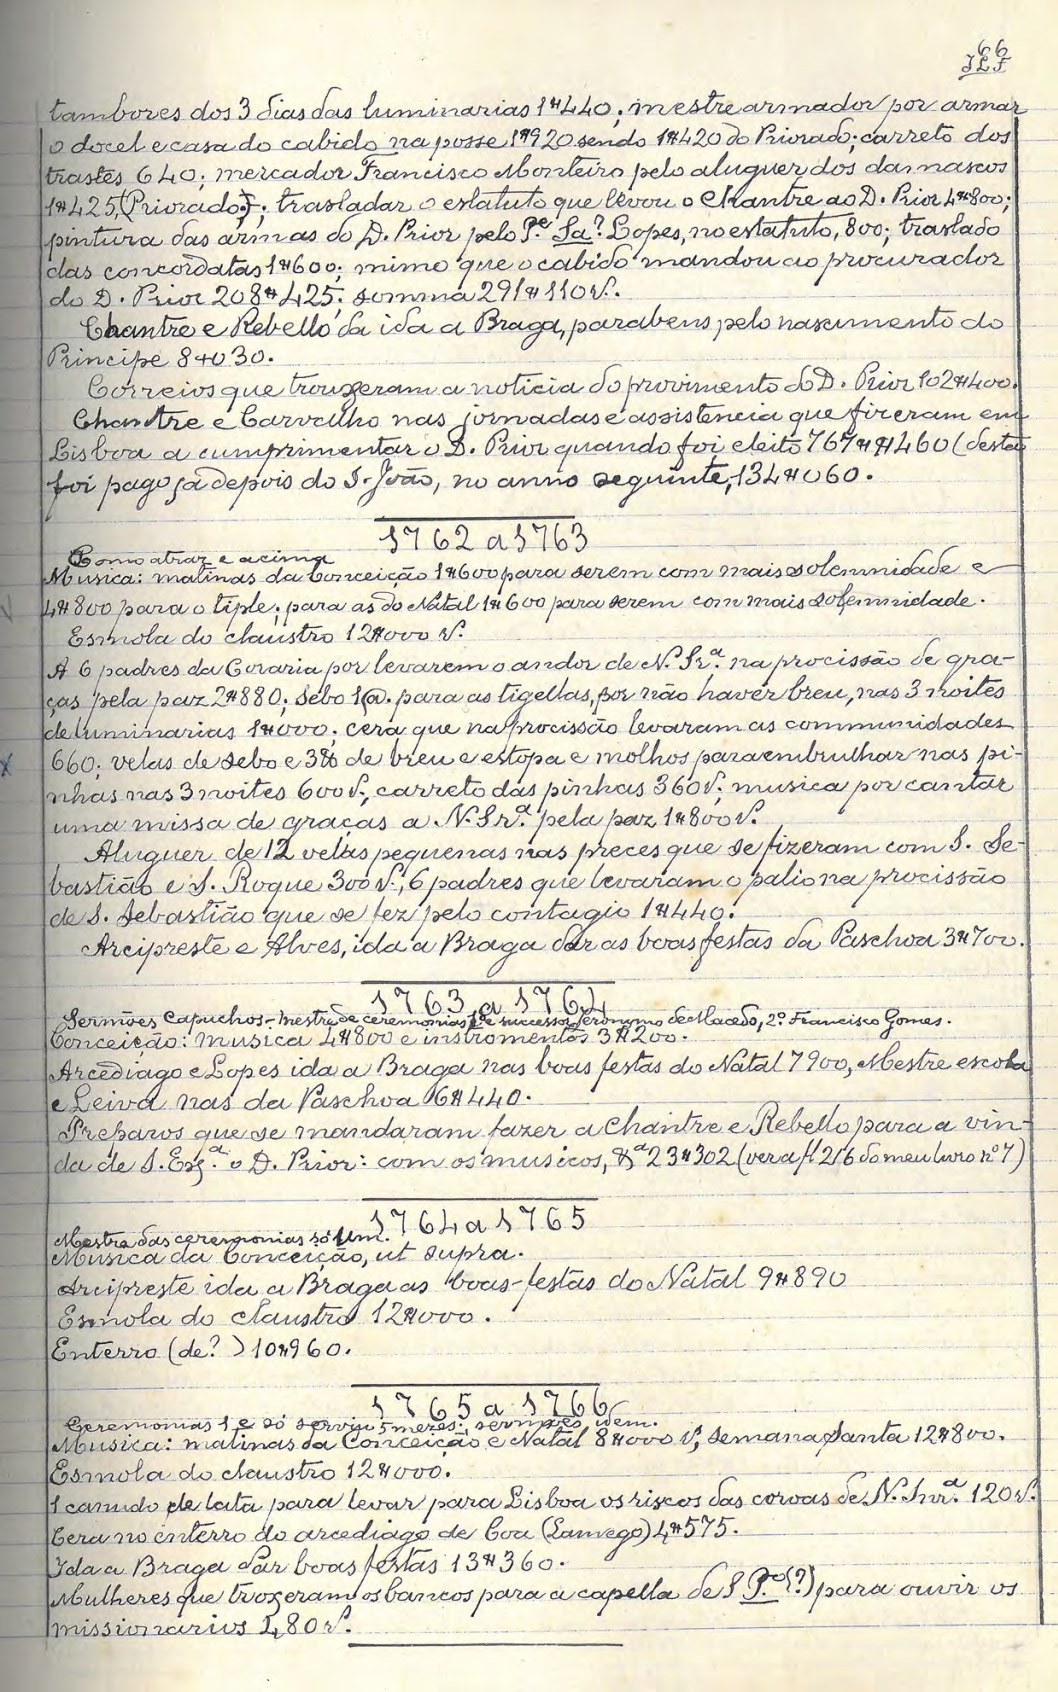 66
tambores dos 3 dias das luminarias 1$440; mestre armador por armar
o docel e casa do cabido na posse 1$920 sendo 1$420 do Priorado; carreto dos
trastes 640; mercador Francisco Monteiro pelo aluguer dos damascos
1$425, (Priorado?); trasladar o estatuto que levou o Chantre ao D. Prior 4$800;
pintura das armas do D. Prior pelo P.e Sa? Lopes, no estatuto, 800; traslado
das concordatas 1$600; mimo que o cabido mandou ao procurador
do D. Prior 208$425; somma 291$110 r.
Chantre e Rebello da ida a Braga, parabens pelo nascimento do
Principe 8$030.
Correios que trouxeram a noticia do provimento do D. Prior 102$400.
Chantre e Carvalho nas jornadas e assistencia que fizeram em
Lisboa a cumprimentar o D. Prior quando foi eleito 767$460 (desta
foi pago já depois do S. João, no anno seguinte, 134$060.
1762 a 1763
Como atraz e acima
Musica: matinas da Conceição 1$600 para serem com mais solemnidade e
4$800 para o tiple; para as do Natal 1$600 para serem com mais solemnidade.
Esmola do claustro 12$000 r.
A 6 padres da Coraria por levarem o andor de N. Sr.a na procissão de gra-
ças pela paz 2$880; sebo 1@. para as tigellas, por não haver breu, nas 3 noites
de luminarias 1$000; cera que na procissão levaram as communidades
660; velas de sebo e de breu e estopa e molhos para embrulhar nas pi-
nhas nas 3 noites 600 r; carreto das pinhas 360 r; musica por cantar
uma missa de graças a N. Sr.a pela paz 1$800 r.
Aluguer de 12 velas pequenas nas preces que se fizeram com S. Se-
bastião e S. Roque 300 r; 6 padres que levaram o palio na procissão
de S. Sebastião que se fez pelo contagio 1$440.
Arcipreste e Alves, ida a Braga dar as boas festas da Paschoa 3$700.
1763 a 1764
Sermões Capuchos - mestre de ceremonias 1º e successor Jeronymo de Macedo, 2º Francisco Gomes.
Conceição: musica 4$800 e instromentos 3$200.
Arcediago e Lopes ida a Braga nas boas festas do Natal 7900, Mestre escola
e Leiva nas da Paschoa 6$440.
Preparos que se mandaram fazer a Chantre e Rebello para a vin-
da de S. Exª o D. Prior: com os musicos, &ª 23$302 (ver a fl 216 do meu livro nº 7)
1764 a 1765
Mestre das ceremonias só um.
Musica da Conceição, ut supra.
Arcipreste ida a Braga as boas-festas do Natal 9$890
Esmola do claustro 12$000.
Enterro (de?) 10$960.
1765 a 1766
Ceremonias 1 e só serviu 5 mezes; sermões idem.
Musica: matinas da Conceição e Natal 8$000 r, semana santa 12$800.
Esmola do claustro 12$000.
1 canudo de lata para levar para Lisboa os riscos das coroas de N. Snr.a 120 r.
Cera no enterro do arcediago de Coa (Lamego) 4$575.
Ida a Braga dar boas festas 13$360.
Mulheres que trouxeram os bancos para a capella de S P.º (?) para ouvir os
missionarios 480 r.